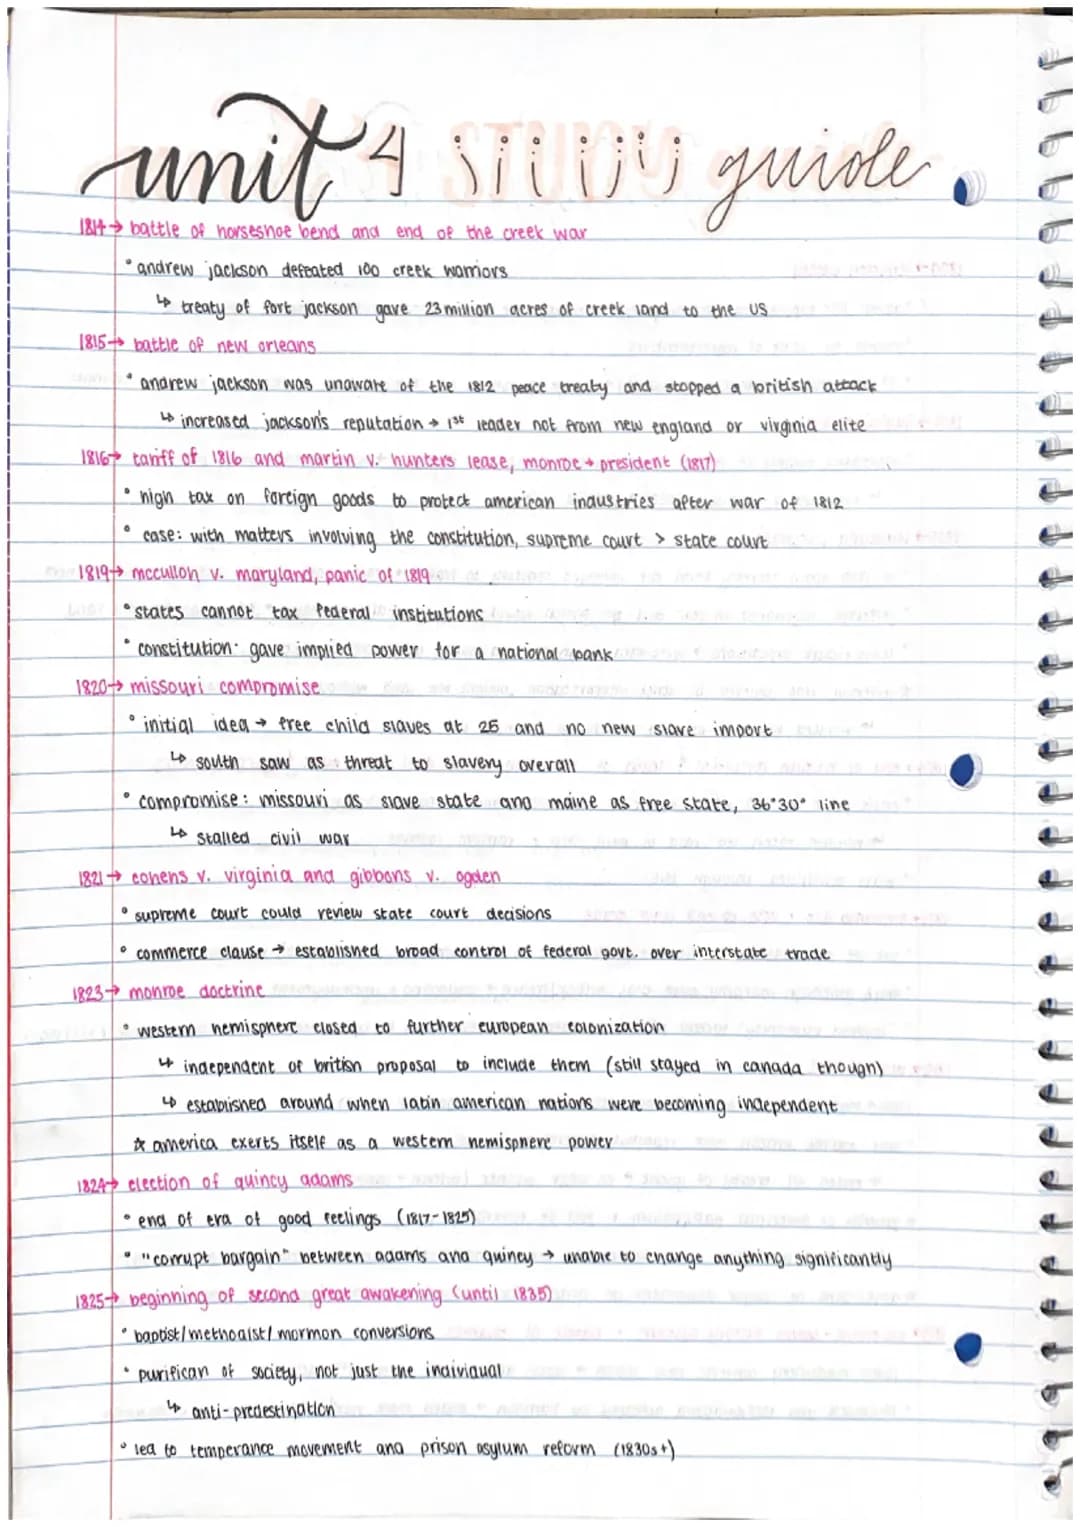 unit 4 guide
1814→ battle of horseshoe bend and end of the creek war
• andrew jackson defeated 100 creek warriors
↳ treaty of fort jackson gave 23 million acres of creek land to the US
1815→ battle of new orleans
• andrew jackson was unaware of the 1812 peace treaty and stopped a british attack
↳ increased jackson's reputation → 1st leader not from new england or virginia elite
1816→ tariff of 1816 and martin v. hunters lease, monroe → president (1817)
• high tax on foreign goods to protect american industries after war of 1812
• case: with matters involving the constitution, supreme court > state court
1819→ mcculloh v. maryland, panic of 1819
• states cannot tax federal institutions
• constitution gave implied power for a national bank
1820→ missouri compromise
• initial idea → free child slaves at 25 and no new slave import
↳ south saw as threat to slavery overall
• compromise: missouri as slave state and maine as free state, 36°30° line
↳ stalled civil war
1821→ cohens v. virginia and gibbons v. ogden
• supreme court could review state court decisions
• commerce clause → established broad control of federal govt. over interstate trade
1823→ monroe doctrine
• western hemisphere closed to further european colonization
↳ independent of british proposal to include them (still stayed in canada though)
↳ established around when latin american nations were becoming independent
☆ america exerts itself as a western hemisphere power
1824→ election of quincy adams
• end of era of good feelings (1817-1825)
• "corrupt bargain" between adams and quincy → unable to change anything significantly
1825→ beginning of second great awakening (until 1835)
• baptist/methodist/mormon conversions
• purifican of society, not just the individual
↳ anti-predestination
• led to temperance movement and prison asylum reform (1830s+)